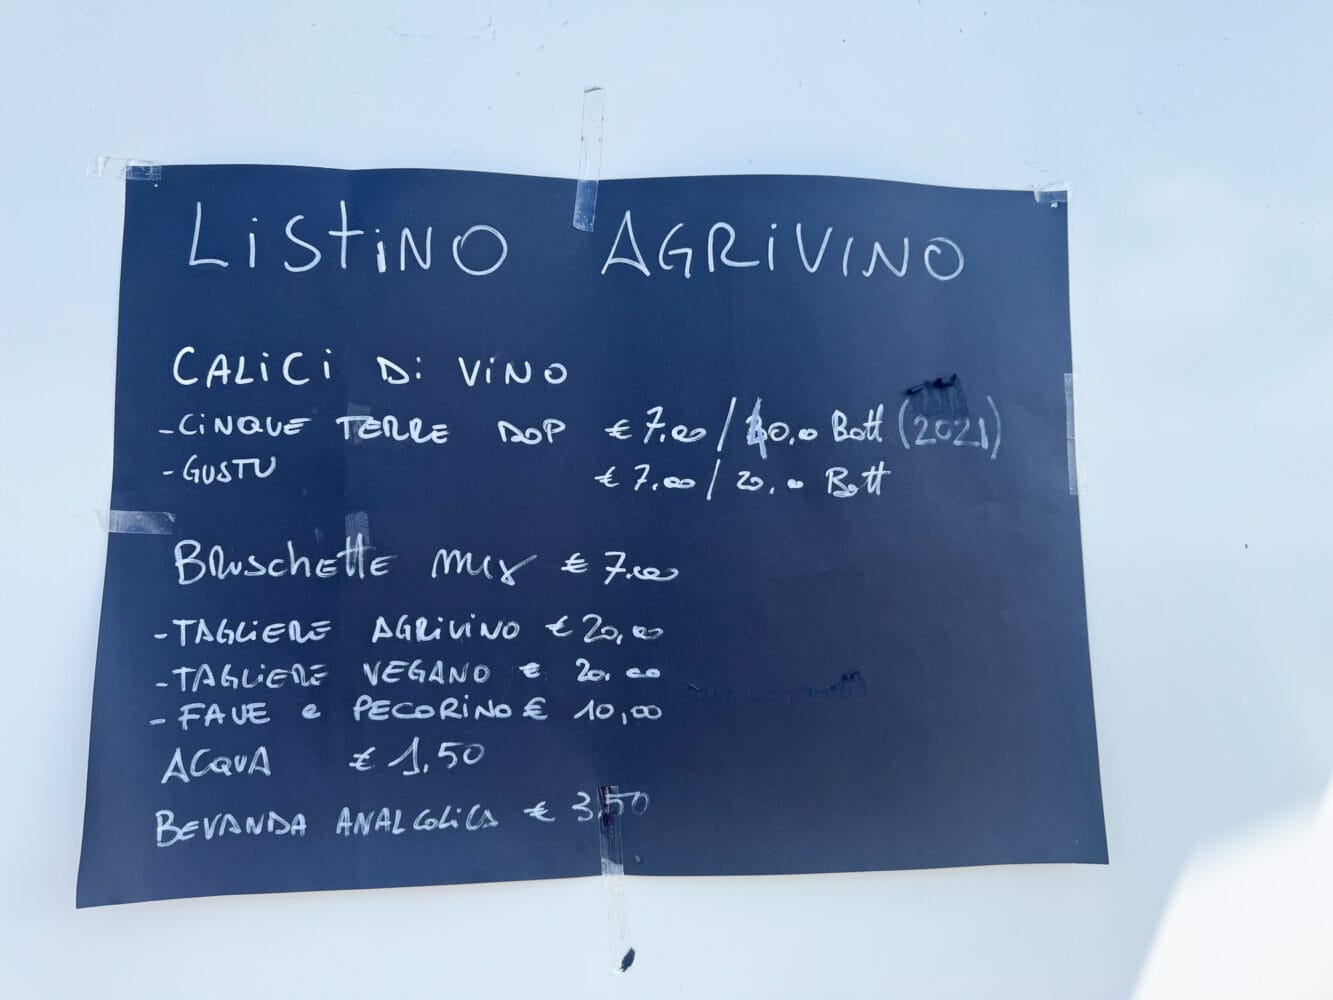 LiStiNO AGRiViNO
CALiCi Di ViNO
-CiNQUE TERRE DOP € 7.00 / 0,00 Bott (2021)
-GUSTU € 7.00 / 20,00 Bott
BRuschette mix € 7.00
-TAGLiERE AGRiViNO € 20,00
-TAGLiERE VEGANO € 20.00
-FAVE e PECORiNO € 10,00
ACQUA € 1,50
BEVANDA ANALCOLiCA € 3,50